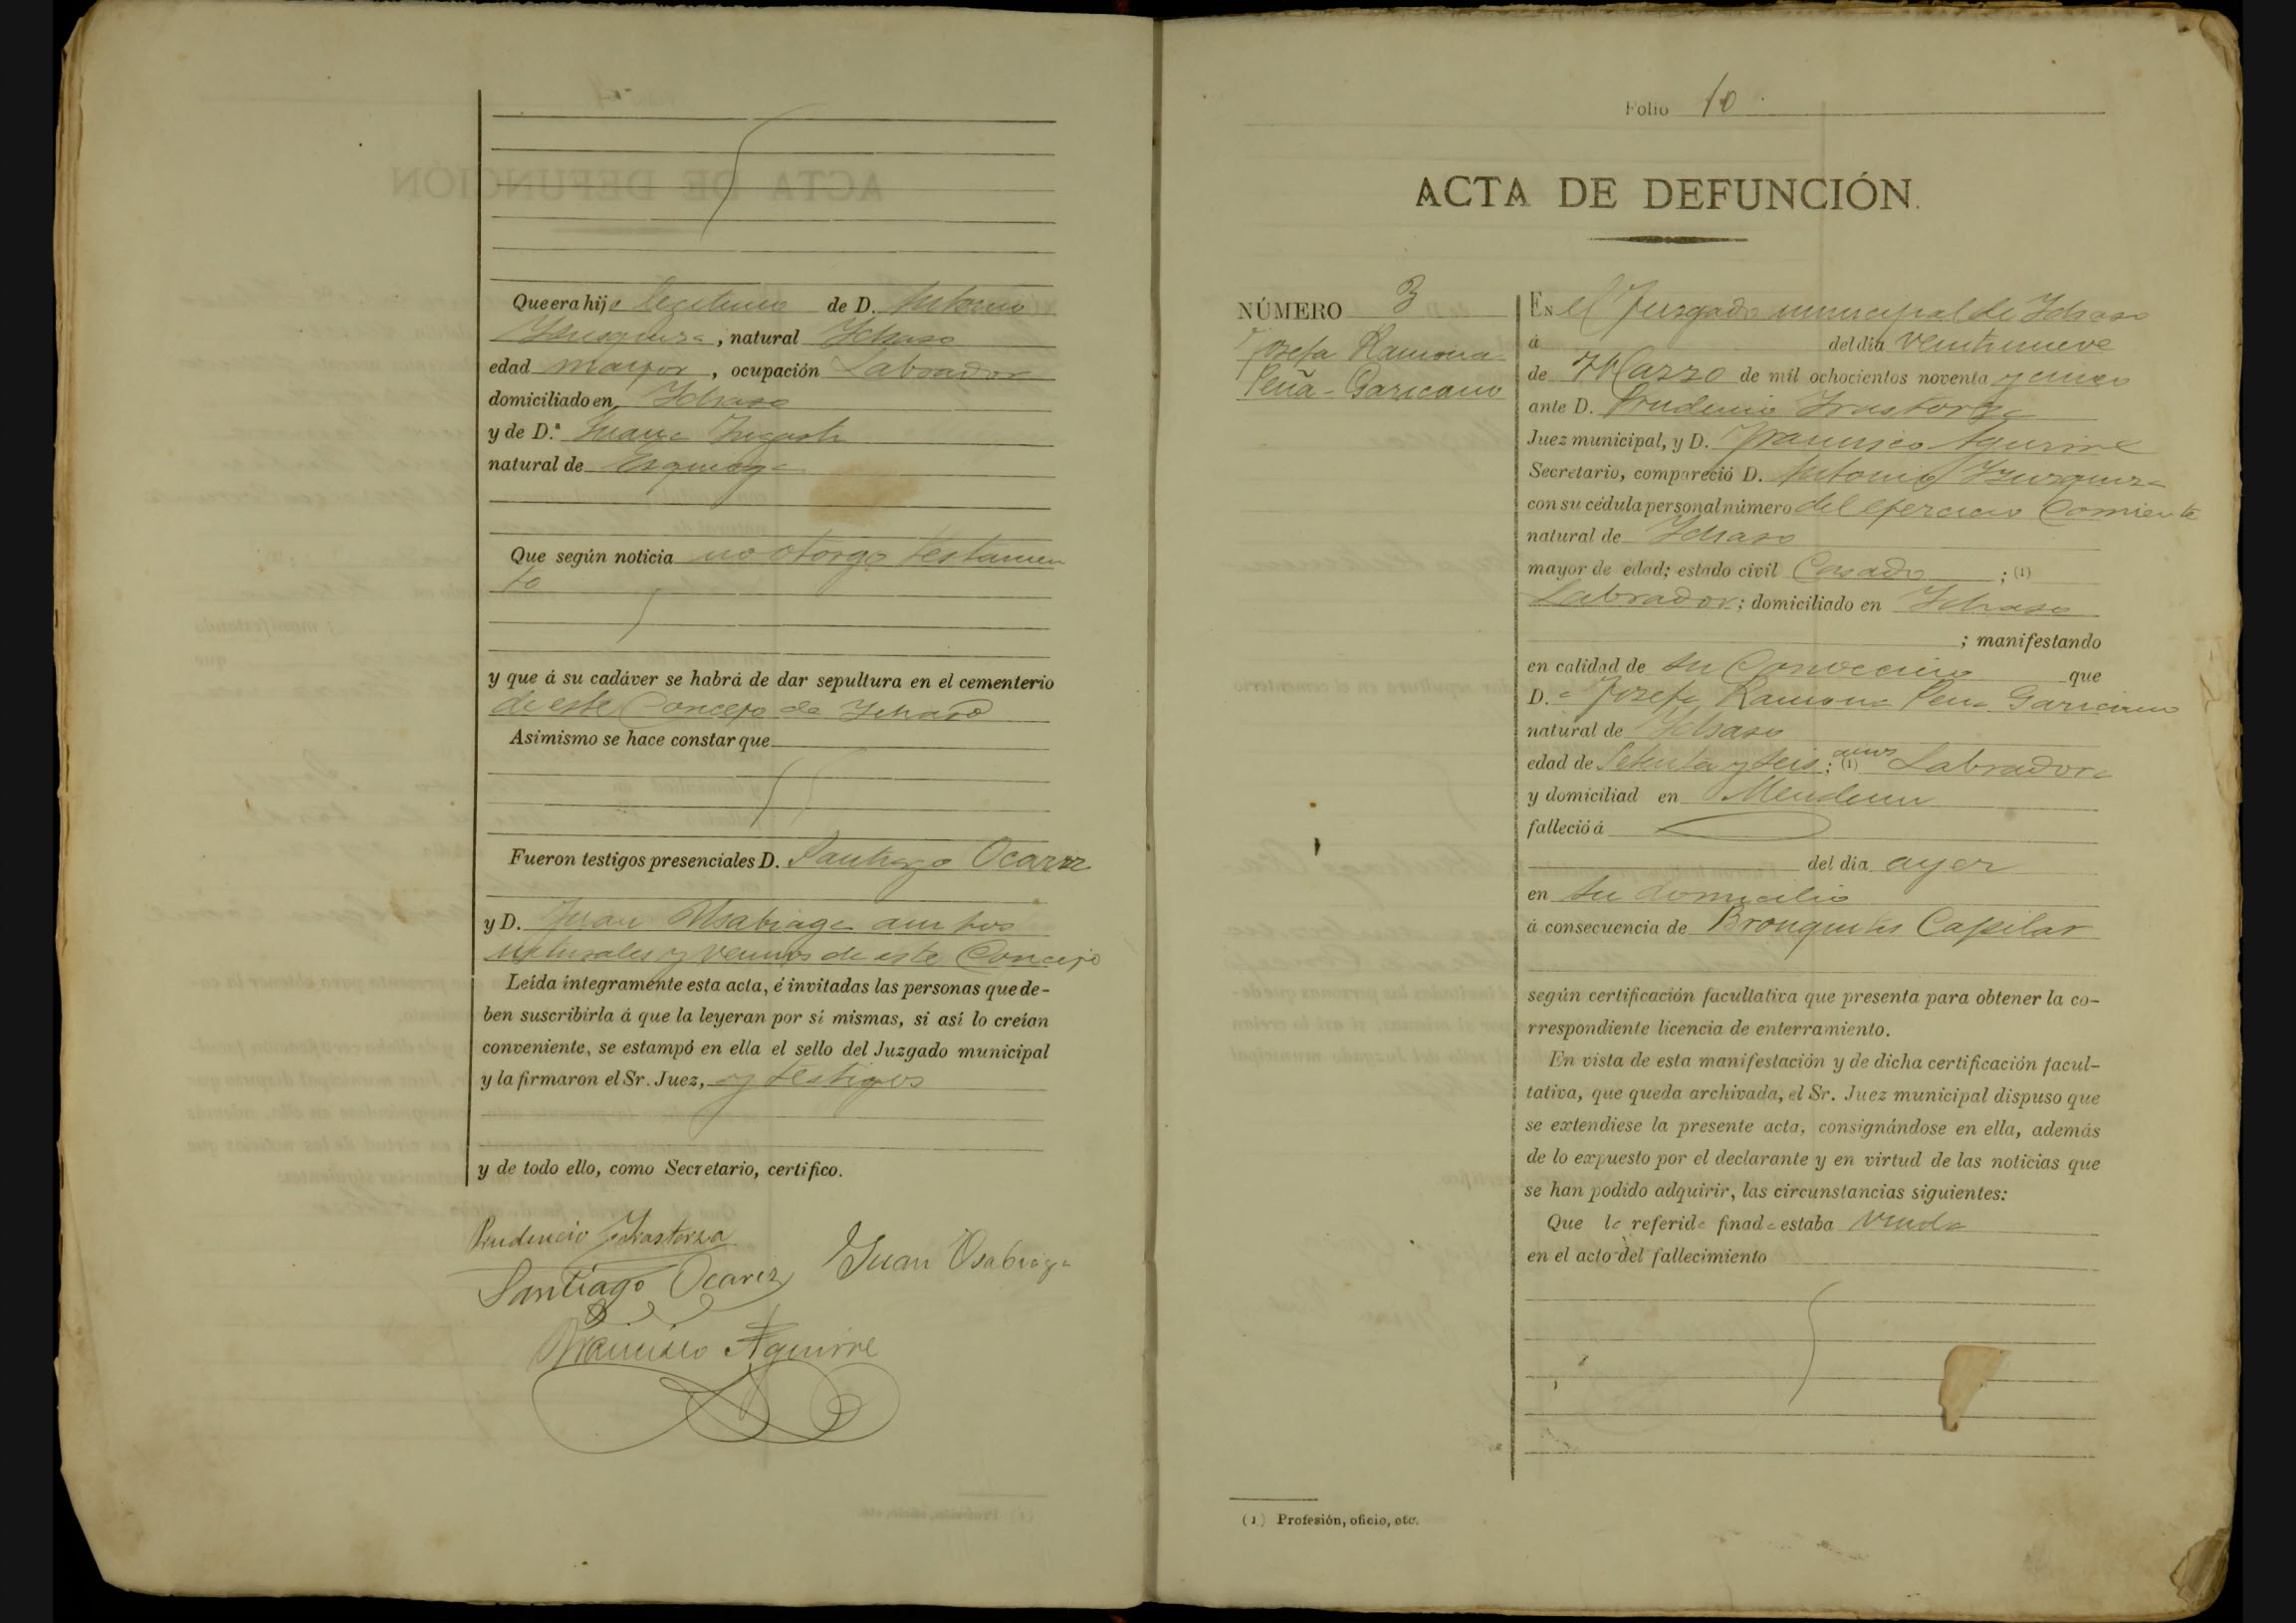 Que era hijo legitimo de D. Antonio
, natural Ichaso
edad mayor, ocupación Labrador
domiciliado en Ichaso
y de D.ª Juana
natural de Ezquioga
Que según noticia no otorgo testamen
to
y que á su cadáver se habrá de dar sepultura en el cementerio
de este Concejo de Ichaso
Asimismo se hace constar que
Fueron testigos presenciales D. Santiago Ocariz
y D. Juan Osabiaga ambos
naturales y vecinos de este Concejo
Leída íntegramente esta acta, é invitadas las personas que de-
ben suscribirla á que la leyeran por sí mismas, si así lo creían
conveniente, se estampó en ella el sello del Juzgado municipal
y la firmaron el Sr. Juez, y testigos
y de todo ello, como Secretario, certifico.
Prudencio Irastorza
Santiago Ocariz Juan Osabiaga
Francisco Aguirre
Folio 10
ACTA DE DEFUNCIÓN.
NÚMERO 3
Josefa Ramona
Peña-Garicano
En el Juzgado municipal de Ichaso
á del día veintinueve
de Marzo de mil ochocientos noventa y cinco
ante D. Prudencio Irastorza
Juez municipal, y D. Francisco Aguirre
Secretario, compareció D. Antonio
con su cédula personal número del ejercicio Corriente
natural de Ichaso
mayor de edad; estado civil Casado; (1)
Labrador; domiciliado en Ichaso
; manifestando
en calidad de su Convecino que
D.ª Josefa Ramona Pena Garicano
natural de Ichaso
edad de Setenta y seis años; (1) Labradora
y domiciliad en
falleció á
del día ayer
en su domicilio
á consecuencia de Bronquitis Capilar
según certificación facultativa que presenta para obtener la co-
rrespondiente licencia de enterramiento.
En vista de esta manifestación y de dicha certificación facul-
tativa, que queda archivada, el Sr. Juez municipal dispuso que
se extendiese la presente acta, consignándose en ella, además
de lo expuesto por el declarante y en virtud de las noticias que
se han podido adquirir, las circunstancias siguientes:
Que la referida finada estaba viuda
en el acto del fallecimiento
(1) Profesión, oficio, etc.